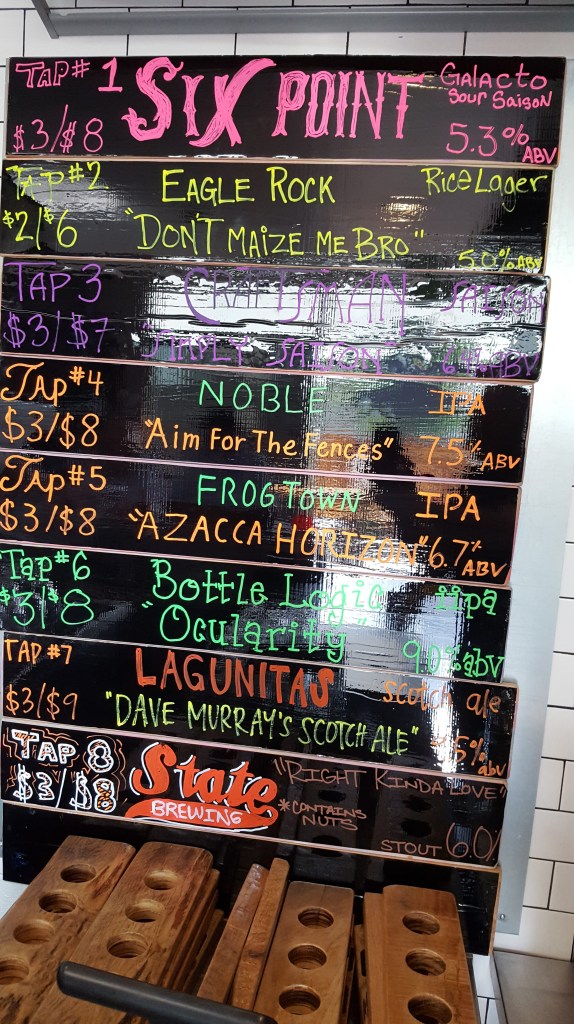 TAP# 1 SIX POINT GALACTO
SOUR SAISON
$3/$8 5.3% ABV
TAP #2 EAGLE ROCK Rice Lager
$2/$6 "DON'T MAIZE ME BRO" 5.0% ABV
TAP 3 CRAFTSMAN SAISON
$3/$7 "SIMPLY SAISON" ABV
TAP #4 NOBLE IPA
$3/$8 "Aim For The Fences" 7.5% ABV
TAP #5 FROGTOWN IPA
$3/$8 "AZACCA HORIZON" 6.7% ABV
Tap #6 Bottle Logic iipa
$3/$8 "Ocularity" 9.0% abv
TAP #7 LAGUNITAS scotch ale
$3/$9 "DAVE MURRAY'S SCOTCH ALE" abv
TAP 8 State "RIGHT KINDA LOVE"
$3/$8 BREWING *CONTAINS
NUTS
STOUT 6.0%